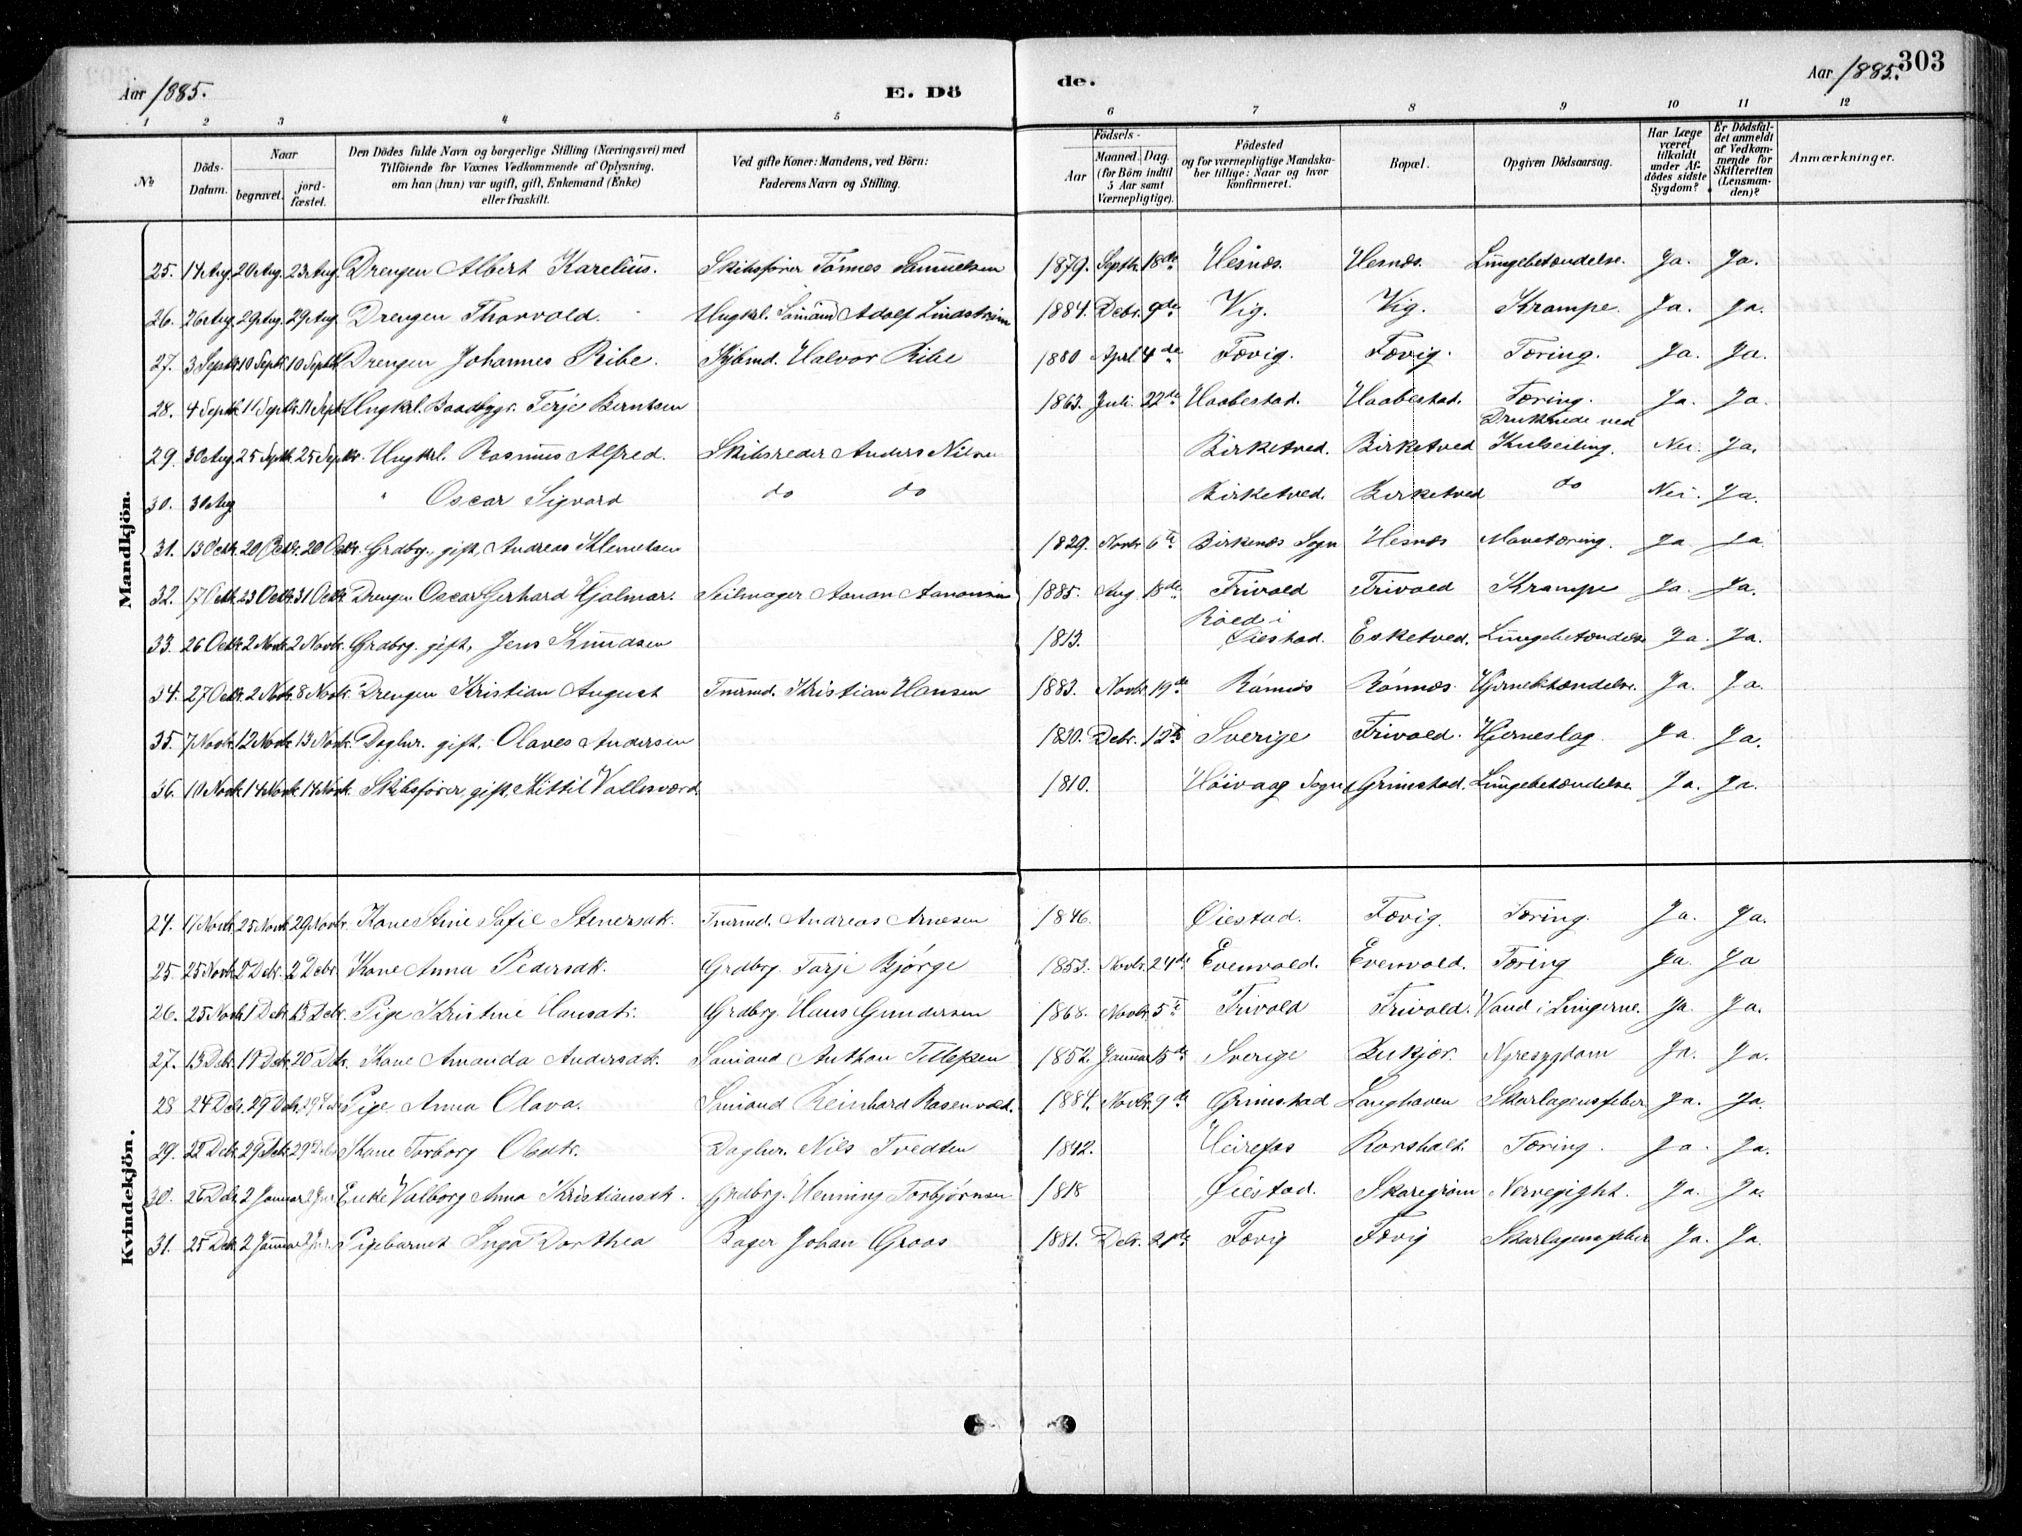 Aar 1885. E. Dö de. Aar 1885. 303
1 2 3 4 5 6 7 8 9 10 11 12
No Döds-Datum. Naar begravet. jordfæstet. Den Dödes fulde Navn og borgerlige Stilling (Næringsvei) med Tilföiende for Voxnes Vedkommende af Oplysning, om han (hun) var ugift, gift, Enkemand (Enke) eller fraskilt. Ved gifte Koner: Mandens, ved Börn: Faderens Navn og Stilling. Födsels- Aar Maaned. Dag. (for Börn indtil 5 Aar samt Værnepligtige). Födested og for værnepligtige Mandskaber tillige: Naar og hvor konfirmeret. Bopæl. Opgiven Dödsaarsag. Har Læge været tilkaldt under Afdödes sidste Sygdom? Er Dödsfaldet anmeldt af Vedkommende for Skifteretten (Lensmanden)? Anmærkninger.
Mandkjön.
25. 14 Aug. 20 Aug. 23 Aug. Drengen Albert Karelius. Skibsfører Tönnes Samuelsen 1879. Septbr. 18de Hesnæs. Hesnæs. Lungebetændelse. Ja. Ja.
26. 26 Aug. 29 Aug. 29 Aug. Drengen Thorvald. Ungkrl. Sömand Adolf Lindström 1884. Decbr. 9de Vig. Vig. Krampe. Ja. Ja.
27. 3 Septb. 10 Septb. 10 Septb. Drengen Johannes Ribe. Kjbmd. Halvor Ribe 1880 Apri 4de Fævig. Fævig. Tæring. Ja. Ja.
28. 4 Septb. 11 Septb. 11 Septb. Ungkrl. Baadbygr. Terje Berntsen 1863. Juli 22de Haabestad. Haabestad. Tæring. Ja. Ja.
29. 30 Aug. 25 Septb. 25 Septb. Ungkrl. Rasmus Alfred. Skibsreder Anders Nilsen Birketved. Birketved Druknede ved Kulseiling. Nei. Ja.
30. 30 Aug. " Oscar Sigvard do do Birketved. Birketved do Nei. Ja.
31. 13 Octb. 20 Octb. 20 Octb. Grdbrg., gift, Andreas Klemetsen 1829. Novbr. 6te Birkenæs Sogn Hesnæs Mavetæring. Ja Ja
32. 17 Octb. 23 Octb. 31 Octb. Drengen Oscar Gerhard Hjalmar. Seilmager Aanon Aanonsen 1885. Aug. 18de Frivold Frivold Krampe Ja. Ja.
33. 26 Octb. 2 Novb. 2 Novb. Grdbrg. gift, Jens Knudsen 1813. Roed i Öiestad. Esketved. Lungebetændelse Ja. Ja.
34. 27 Octb. 2 Novb. 8 Novb. Drengen Kristian August Tmrmd. Kristian Hansen 1883. Novbr. 19de Rönnæs Rönnæs. Hjernebetændelse. Ja. Ja.
35. 7 Novb. 12 Novb. 13 Novb. Daglnr. gift, Olaves Andersen 1830. Decbr. 12te Sverige Frivold. Hjerneslag. Ja. Ja.
36. 10 Novb. 14 Novb. 14 Novb. Skibsfører, gift, Kittil Vallesværd. 1810. Höivaag Sogn Grimstad. Lungebetændelse Ja. Ja.
Kvindekjön.
24. 11 Novb. 25 Novb. 29 Novbr. Kone Stine Sofie Stenersdt. Tmrmd. Andreas Arnesen 1846. Öiestad. Fævig. Tæring. Ja. Ja.
25. 25 Novb. 2 Decbr. 2 Decbr. Kone Anna Pedersdt. Grdbrg. Tarje Bjørge 1853. Novbr. 24de Evenvold. Evenvold. Tæring Ja. Ja
26. 25 Novb. 1 Decbr. 13 Decbr. Pige Kristine Hansdt. Grdbrg. Hans Gundersen 1868. Novbr. 5te Frivold Frivold. Vand i Lungerne. Ja. Ja.
27. 13 Decbr. 18 Decbr. 20 Decbr. Kone Amanda Andersdt. Sömand Anthon Tellefsen 1852. Januar 15de Sverige Nyresygdom Ja. Ja.
28 24 Decbr. 29 Decbr. Pige Anna Olava. Sömand Reinhard Rosenvold. 1884. Novbr. 9de Grimstad Langhaven Skarlagensfeber Ja. Ja.
29. 22 Decbr. 29 Decbr. 29 Decbr Kone Torborg Olsdt. Daglnr. Nils Tvedten 1842. Heirefos Rorshalt. Tæring. Ja. Ja.
30. 26 Decbr. 2 Januar Enke Valborg Anna Kristiansdt. Grdbrg. Henning Torbjørnsen 1818 Öiestad. Skaregröm Nervegight. Ja. Ja.
31. 25 Decbr. 2 Januar Pigebarnet Inga Dorthea Bager Johan Groos 1881. Decbr. 21de Fævig Fævig Skarlagensfeber Ja. Ja.